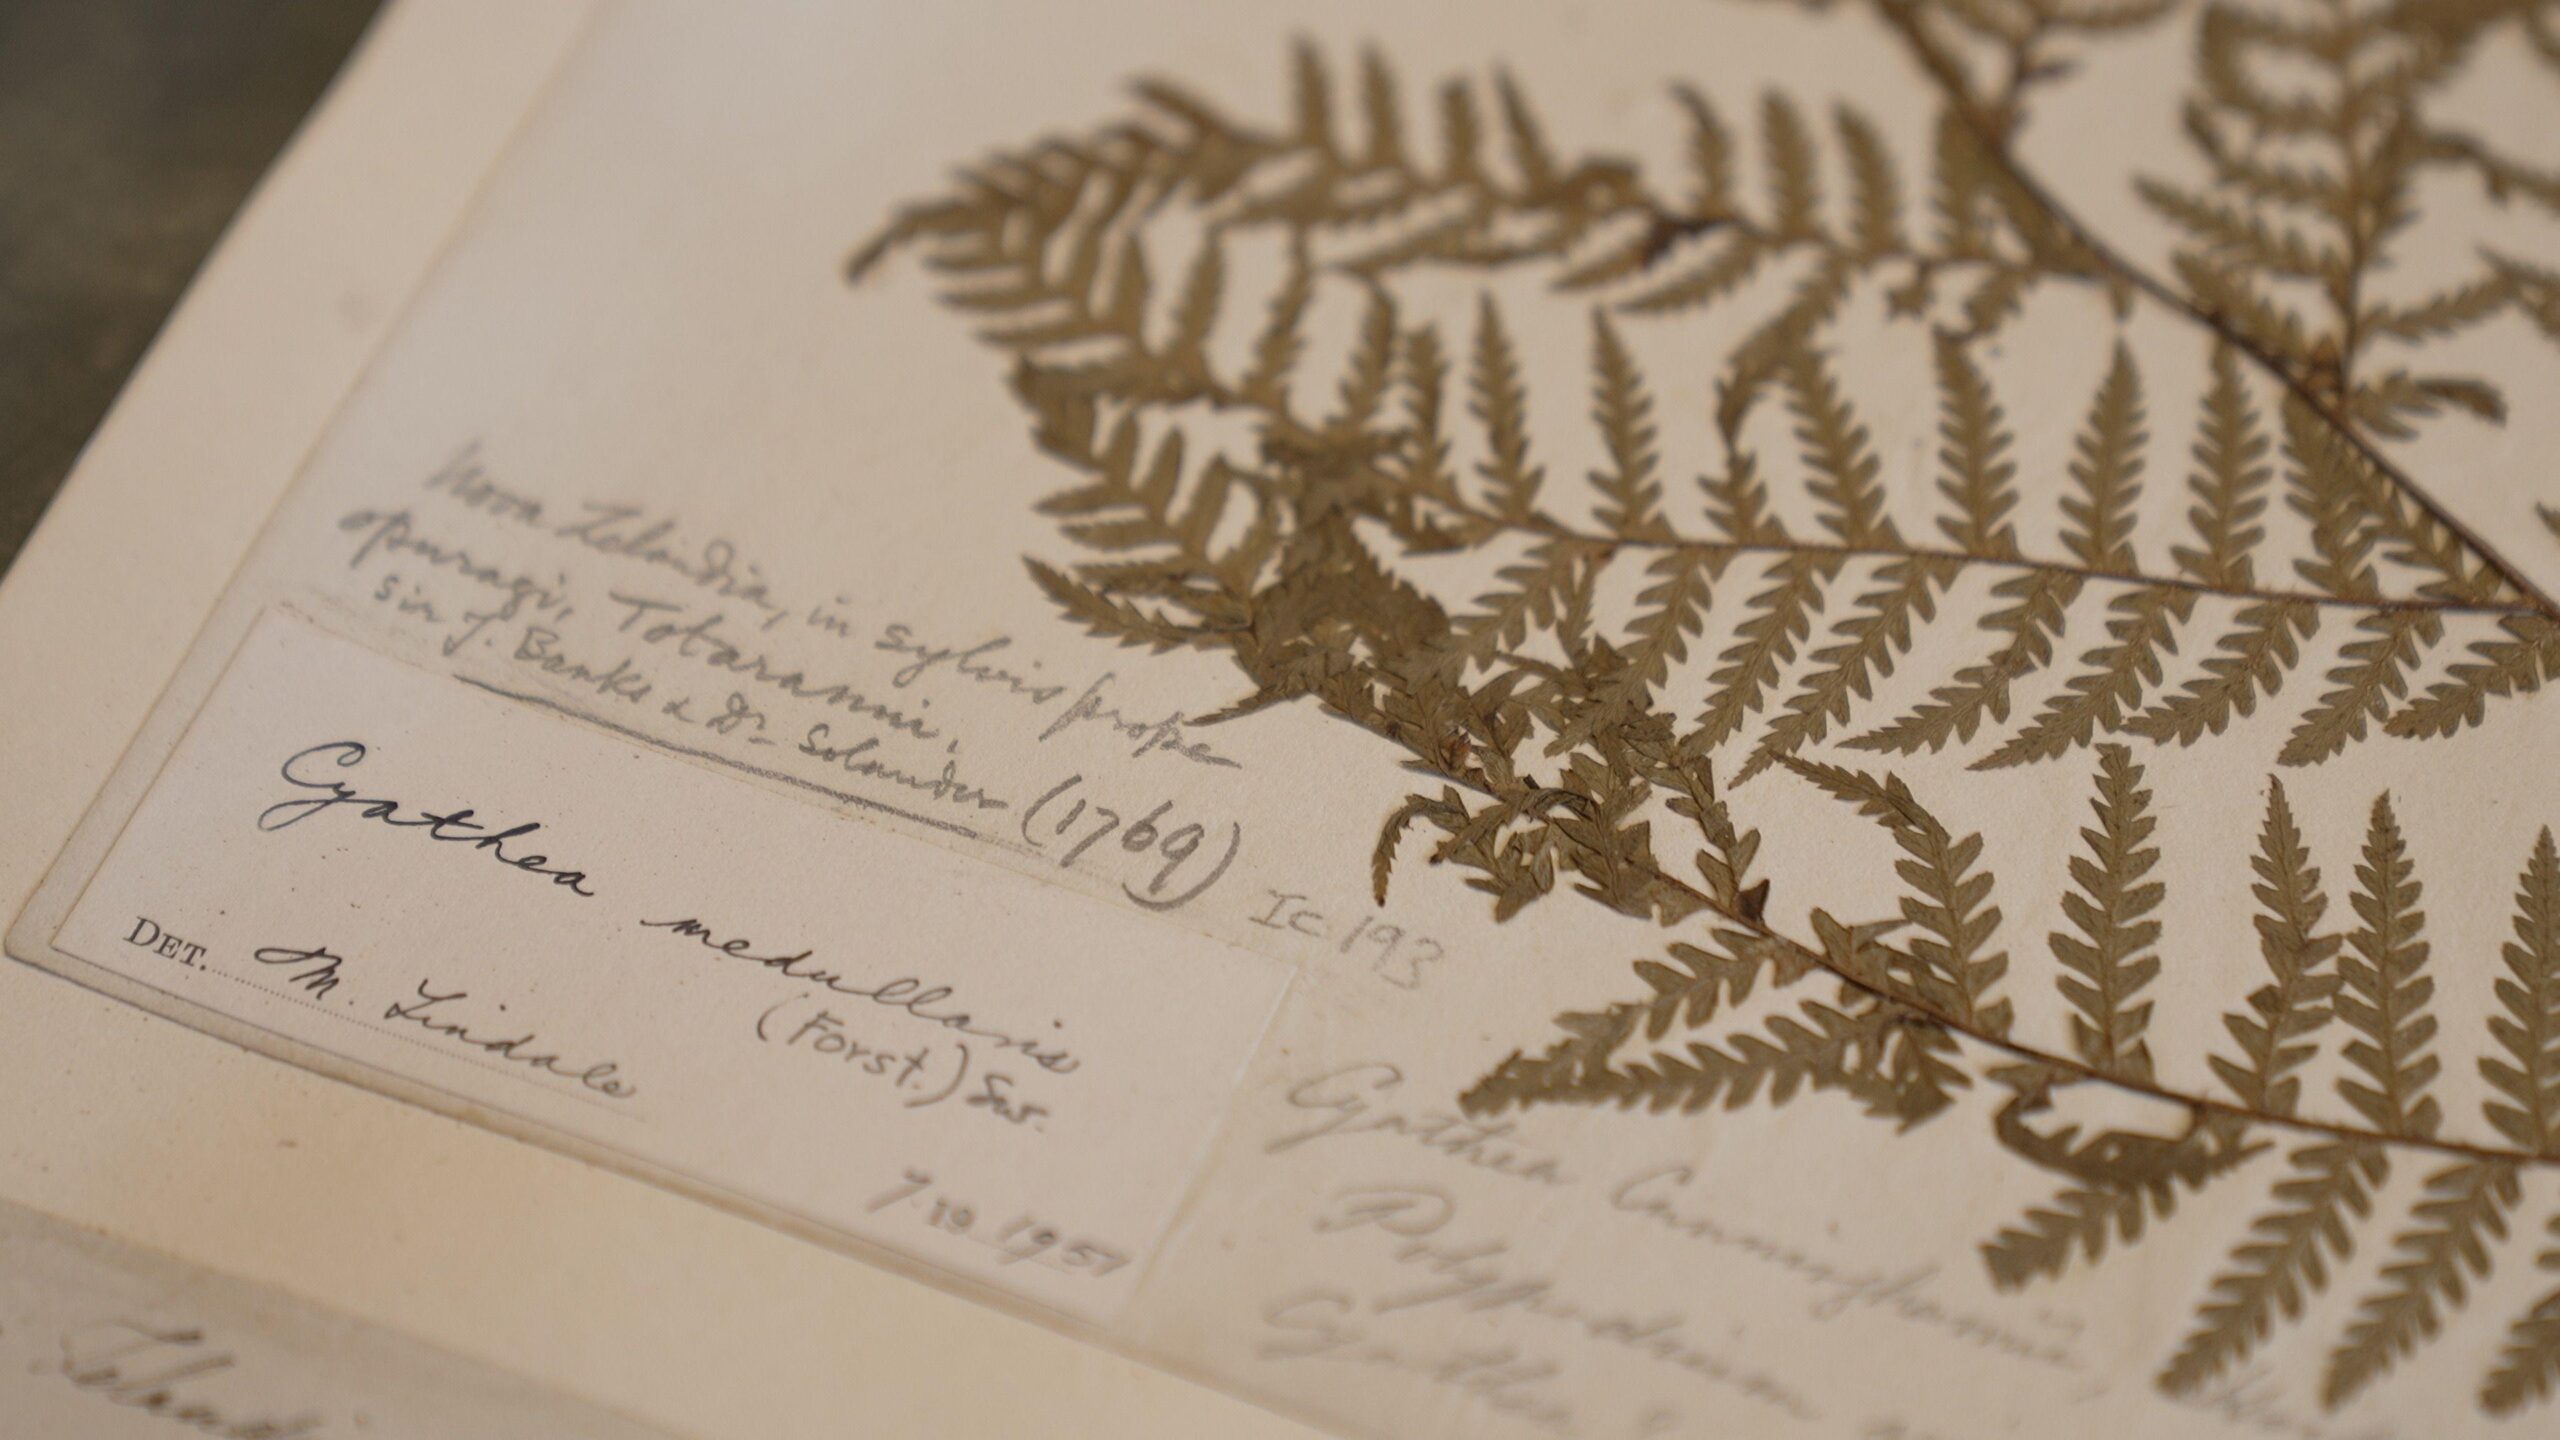 Nova Zelandia, in sylvis prope
opuragi, Totaranui,
Sir J. Banks & Dr Solander (1769)
IC 193
Cyathea medullaris
(Forst.) Sw.
DET. M. Lindale
7.10.1951
Cyathea Cunninghamii,
Polypodium
Cyathea
Zelandi